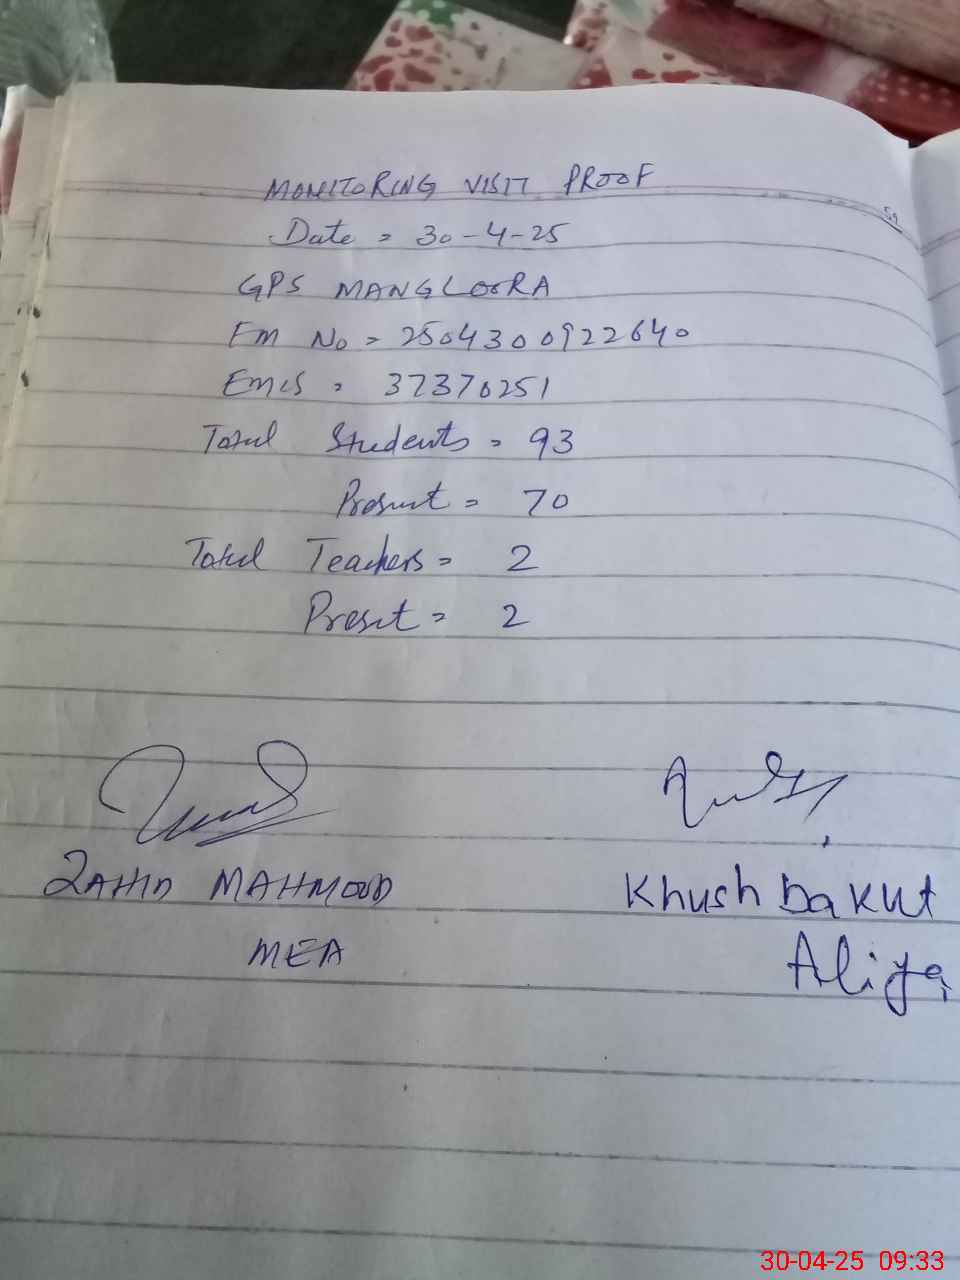 59
MONITORING VISIT PROOF
Date = 30-4-25
GPS MANGLOORA
EM No = 2504300922640
EMIS = 37370251
Total Students = 93
Present = 70
Total Teachers = 2
Preset = 2
ZAHID MAHMOOD
Khush Dakut
MEA
Aliya
30-04-25 09:33